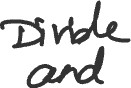 Divide
and